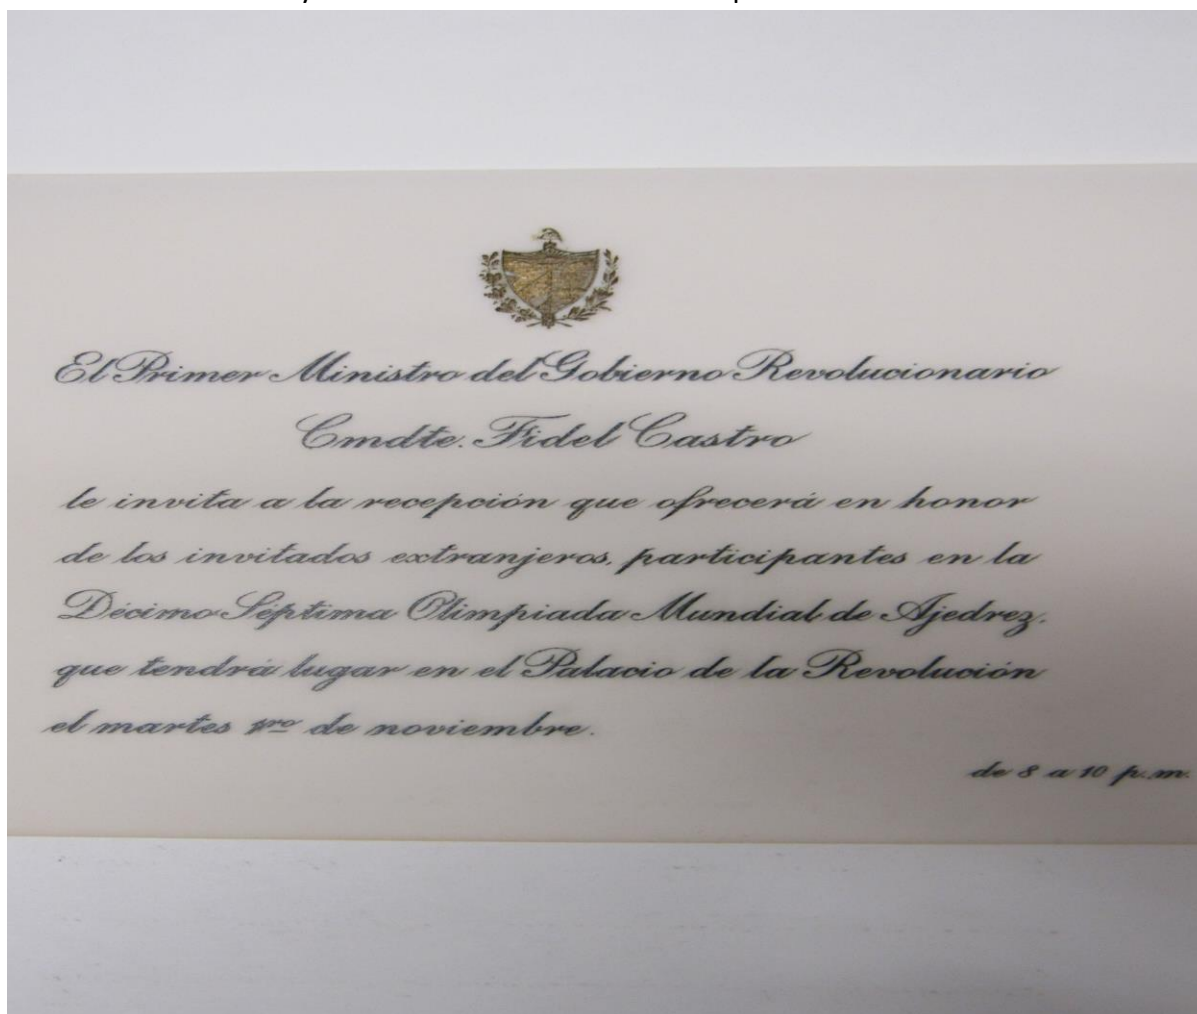 El Primer Ministro del Gobierno Revolucionario
Cmdte. Fidel Castro
le invita a la recepción que ofrecerá en honor
de los invitados extranjeros, participantes en la
Décimo Séptima Olimpiada Mundial de Ajedrez,
que tendrá lugar en el Palacio de la Revolución
el martes 1ro de noviembre.
de 8 a 10 p.m.